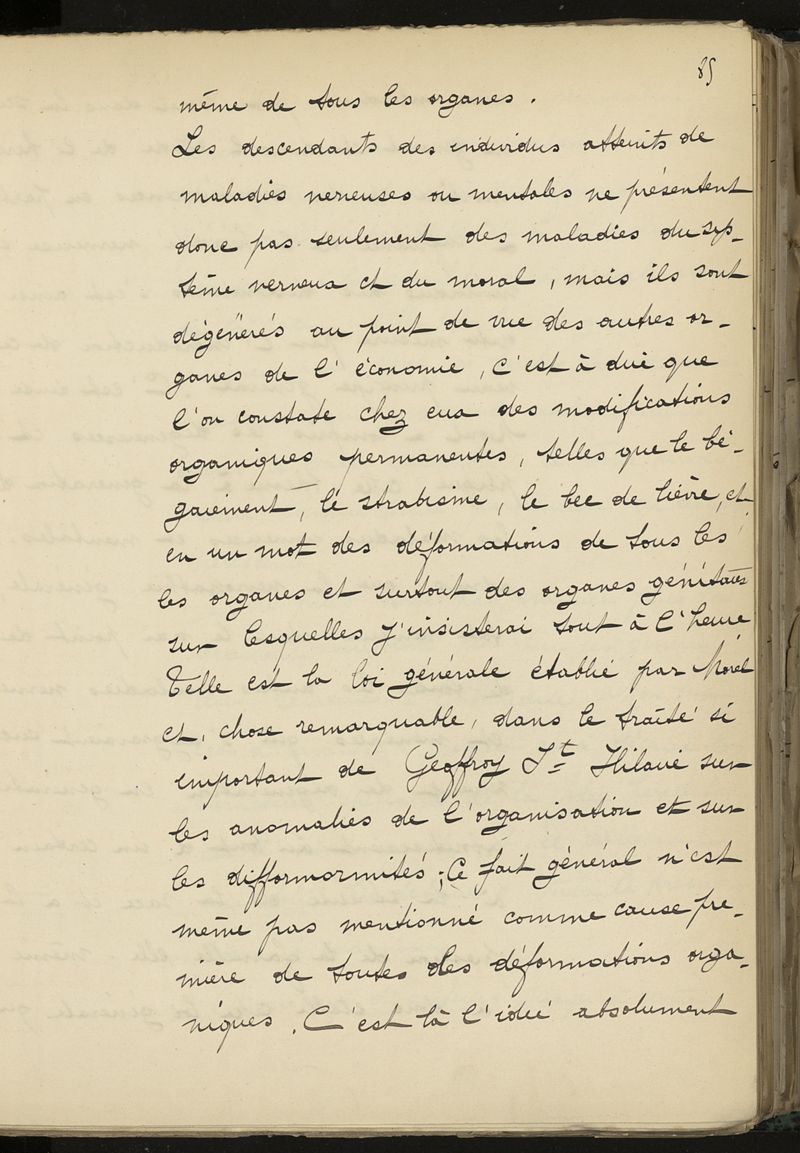 85
même de tous les organes.
Les descendants des individus atteints de
maladies nerveuses ou mentales ne présentent
donc pas seulement des maladies du sys-
tème nerveux et du moral, mais ils sont
dégénérés au point de vue des autres or-
ganes de l'économie, c'est à dire que
l'on constate chez eux des modifications
organiques permanentes, telles que le bé-
gaiement, le strabisme, le bec de lièvre, et
en un mot des déformations de tous les
les organes et surtout des organes génitaux
sur lesquelles j'insisterai tout à l'heure
Telle est la loi générale établie par Morel
et, chose remarquable, dans le traité si
important de Geoffroy St Hilaire sur
les anomalies de l'organisation et sur
les difformormités; Ce fait général n'est
même pas mentionné comme cause pre-
mière de toutes des déformations orga-
niques. C'est là l'idée absolument